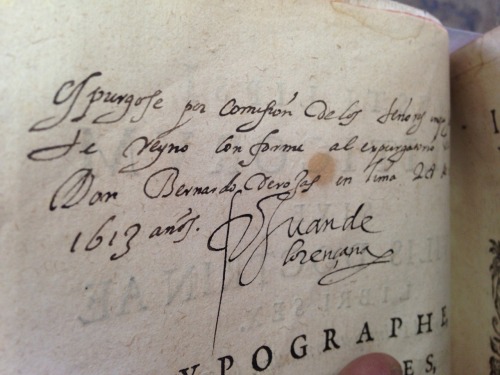 Espurgose por Comision De los Señores
de reyno conforme al expurgatorio
Don Bernardo Derojas en lima 28
1613 años. Juan de
lorençana
YPOGRAPHE
ES,